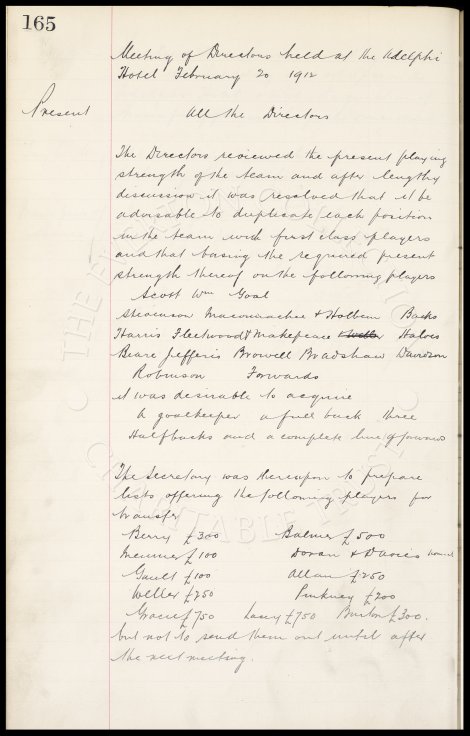 165
Meeting of Directors held at the Adelphi
Hotel February 20 1912
Present All the Directors
The Directors reviewed the present playing
strength of the team and after lengthy
discussion it was resolved that it be
advisable to duplicate each position
in the team with first class players
and that basing the required present
strength thereof on the following players
Scott Wm Goal
Stevenson Maconnachie & Holbem Backs
Harris Fleetwood & Makepeace Weller Halves
Beare Jefferis Browell Bradshaw Davidson
Robinson Forwards
it was desirable to acquire
A goalkeeper a full back three
Halfbacks and a complete line of forwards
The Secretary was thereupon to prepare
lists offering the following players for
transfer
Berry £300 Balmer £500
Meunier £100 Doran & Davies
Gault £100 Allan £250
Weller £250 Pinkney £200
Gracie £750 Lacey £750 Burton £300.
but not to send them out until after
the next meeting.